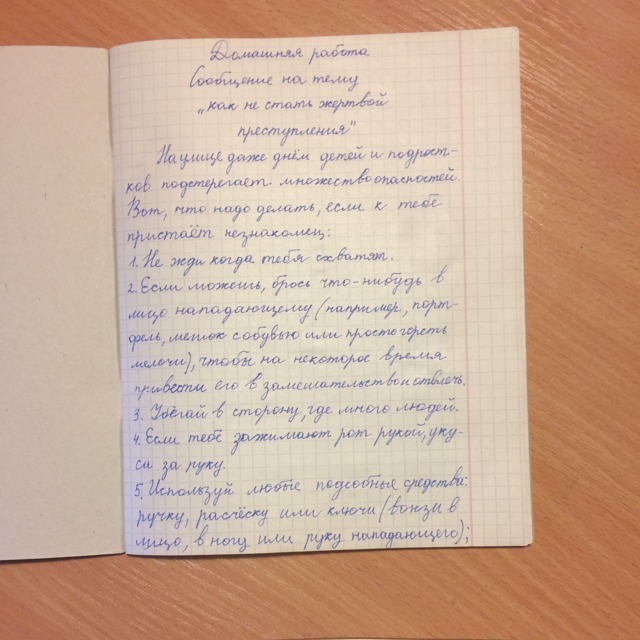 Домашняя работа
Сообщение на тему
„как не стать жертвой
преступления"
На улице даже днём детей и подрост-
ков подстерегает множество опасностей.
Вот, что надо делать, если к тебе
пристаёт незнакомец:
1. Не жди когда тебя схватят.
2. Если можешь, брось что-нибудь в
лицо нападающему (например, порт-
фель, мешок с обувью или просто горсть
мелочи), чтобы на некоторое время
привести его в замешательство и отвлечь.
3. Убегай в сторону, где много людей.
4. Если тебе зажимают рот рукой, уку-
си за руку.
5. Используй любые подсобные средства:
ручку, расчёску или ключи (вонзи в
лицо, в ногу или руку нападающего);